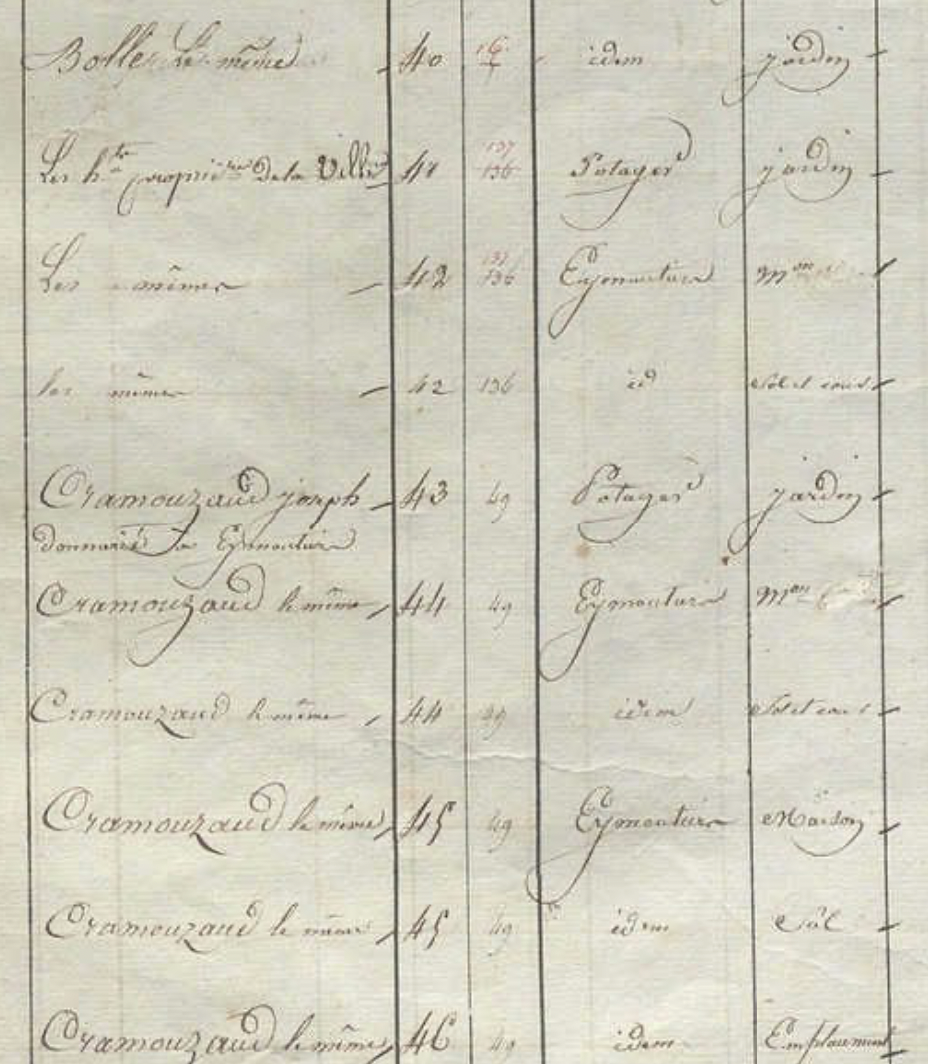 Bolle Le même 40 16 idem jardin
Les h.ts proprié.res De la Ville 41 137 136 Potager jardin
Les mêmes 42 137 136 Eymoutiers M.on
les mêmes 42 136 id Sol et cour
Cramouzaud joseph 43 49 Potager jardin
a Eymoutiers
Cramouzaud le même 44 49 Eymoutiers M.on
Cramouzaud le même 44 49 idem Sol et cour
Cramouzaud le même 45 49 Eymoutiers Maison
Cramouzaud le même 45 49 idem Sol
Cramouzaud le même 46 49 idem Emplacement